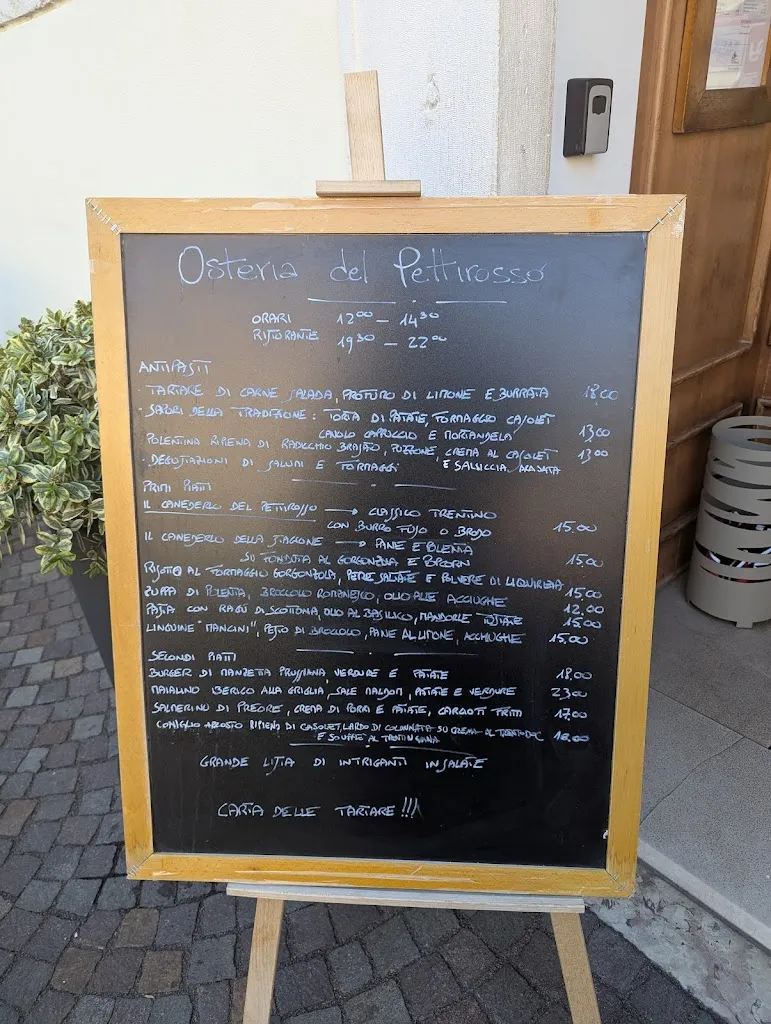 Osteria del Pettirosso
ORARI 1200 - 14 30
RISTORANTE 19 30 - 22 00
ANTIPASTI
TARTARE DI CARNE SALADA, PROFUMO DI LIMONE E BURRATA 18,00
SAPORI DELLA TRADIZIONE: TORTA DI PATATE, FORMAGGIO CASOLET
CAVOLO CAPPUCCIO E MORTANDELA 13,00
POLENTINA RIPIENA DI RADICCHIO BRASATO, PORRONE, CREMA AL CASOLET 13,00
DEGUSTAZIONI DI SALUMI E FORMAGGI E SALSICCIA
PRIMI PIATTI
IL CANEDERLO DEL PETTIROSSO → CLASSICO TRENTINO
CON BURRO FUSO O BRODO 15,00
IL CANEDERLO DELLA STAGIONE → PANE E POLENTA
SU FONDUTA AL GORGONZOLA E 15,00
RISOTTO AL FORMAGGIO GORGONZOLA, PERE SALATE E POLVERE DI LIQUIRIZIA 15,00
ZUPPA DI POLENTA, BROCCOLO ROMANESCO, OLIO ALLE ACCIUGHE 12,00
PASTA CON RAGÙ DI SCOTTONA, OLIO AL BASILICO, MANDORLE TOSTATE 15,00
LINGUINE "MANCINI", PESTO DI BROCCOLO, PANE AL LIMONE, ACCIUGHE 15,00
SECONDI PIATTI
BURGER DI MANZETTA PRUSSIANA, VERDURE E PATATE 18,00
MAIALINO IBERICO ALLA GRIGLIA, SALE MALDON, PATATE E VERDURE 23,00
SALMERINO DI PREORE, CREMA DI PORRI E PATATE, CARCIOFI FRITTI 17,00
CONIGLIO RIPIENO DI CASOLET, LARDO DI COLONNATA SU CREMA AL TRENTODOC
E SOUFFLÉ AL TRENTINGRANA 18,00
GRANDE LISTA DI INTRIGANTI INSALATE
CARTA DELLE TARTARE !!!